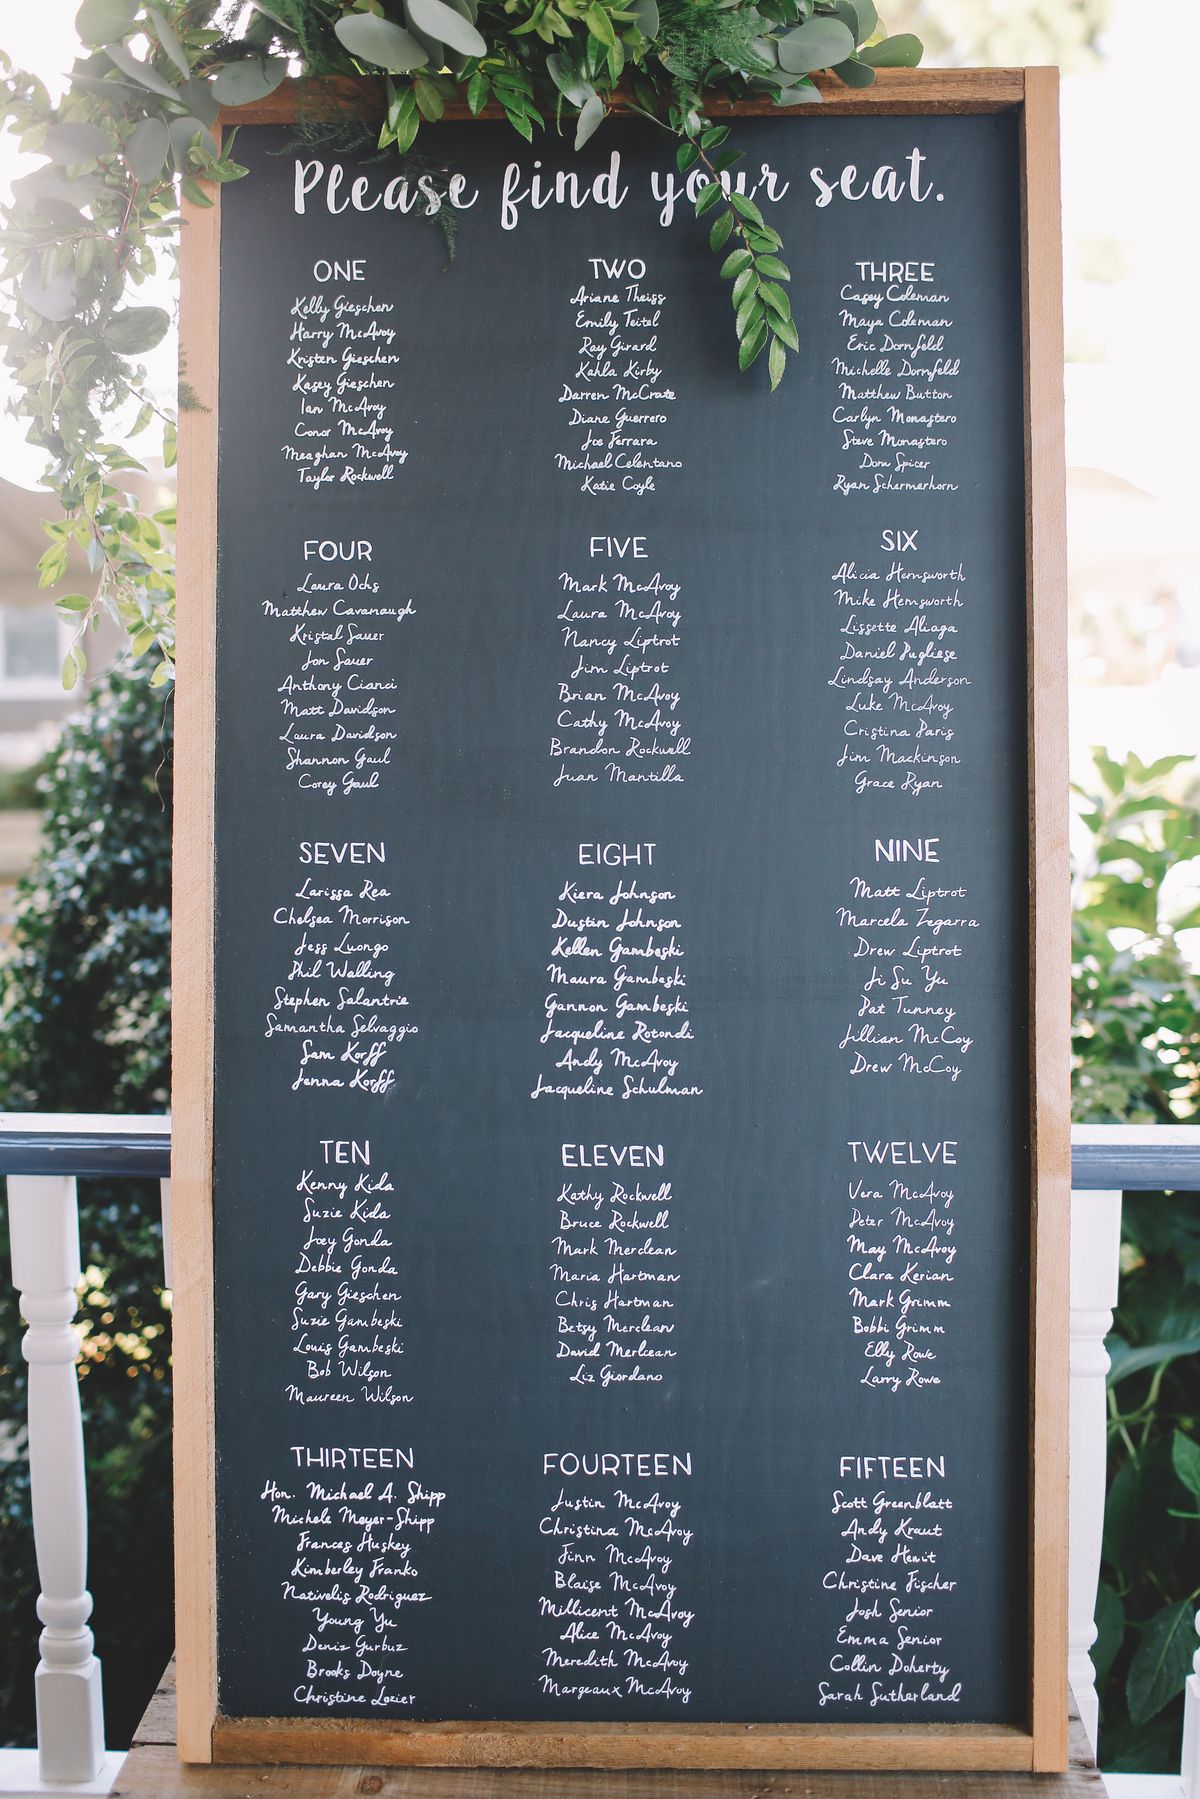 Please find your seat.
ONE
Kelly Gieschen
Harry McAvoy
Kristen Gieschen
Kasey Gieschen
Ian McAvoy
Conor McAvoy
Meaghan McAvoy
Taylor Rockwell
TWO
Ariane Theiss
Emily Teitel
Ray Girard
Kahla Kirby
Darren McCrate
Diane Guerrero
Joe Ferrara
Michael Celentano
Katie Coyle
THREE
Casey Coleman
Maya Coleman
Eric Dornfeld
Michelle Dornfeld
Matthew Button
Carlyn Monastero
Steve Monastero
Dom Spicer
Ryan Schermerhorn
FOUR
Laura Ochs
Matthew Cavanaugh
Kristal Sauer
Jon Sauer
Anthony Cianci
Matt Davidson
Laura Davidson
Shannon Gaul
Corey Gaul
FIVE
Mark McAvoy
Laura McAvoy
Nancy Liptrot
Jim Liptrot
Brian McAvoy
Cathy McAvoy
Brandon Rockwell
Juan Mantilla
SIX
Alicia Hemsworth
Mike Hemsworth
Lissette Aliaga
Daniel Pugliese
Lindsay Anderson
Luke McAvoy
Cristina Paris
Jim Mackinson
Grace Ryan
SEVEN
Larissa Rea
Chelsea Morrison
Jess Luongo
Phil Walling
Stephen Salantrie
Samantha Selvaggio
Sam Korff
Jenna Korff
EIGHT
Kiera Johnson
Dustin Johnson
Kellen Gambeski
Maura Gambeski
Gannon Gambeski
Jacqueline Rotondi
Andy McAvoy
Jacqueline Schulman
NINE
Matt Liptrot
Marcela Zegarra
Drew Liptrot
Ji Su Yu
Pat Tunney
Jillian McCoy
Drew McCoy
TEN
Kenny Kida
Suzie Kida
Joey Gonda
Debbie Gonda
Gary Gieschen
Suzie Gambeski
Louis Gambeski
Bob Wilson
Maureen Wilson
ELEVEN
Kathy Rockwell
Bruce Rockwell
Mark Merclean
Maria Hartman
Chris Hartman
Betsy Merclean
David Merlcean
Liz Giordano
TWELVE
Vera McAvoy
Peter McAvoy
May McAvoy
Clara Kerian
Mark Grimm
Bobbi Grimm
Elly Rowe
Larry Rowe
THIRTEEN
Hon. Michael A. Shipp
Michele Meyer-Shipp
Frances Huskey
Kimberley Franko
Nativelis Rodriguez
Young Yu
Deniz Gurbuz
Brooks Doyne
Christine Lozier
FOURTEEN
Justin McAvoy
Christina McAvoy
Finn McAvoy
Blaise McAvoy
Millicent McAvoy
Alice McAvoy
Meredith McAvoy
Margeaux McAvoy
FIFTEEN
Scott Greenblatt
Andy Kraut
Dave Hewit
Christine Fischer
Josh Senior
Emma Senior
Collin Doherty
Sarah Sutherland